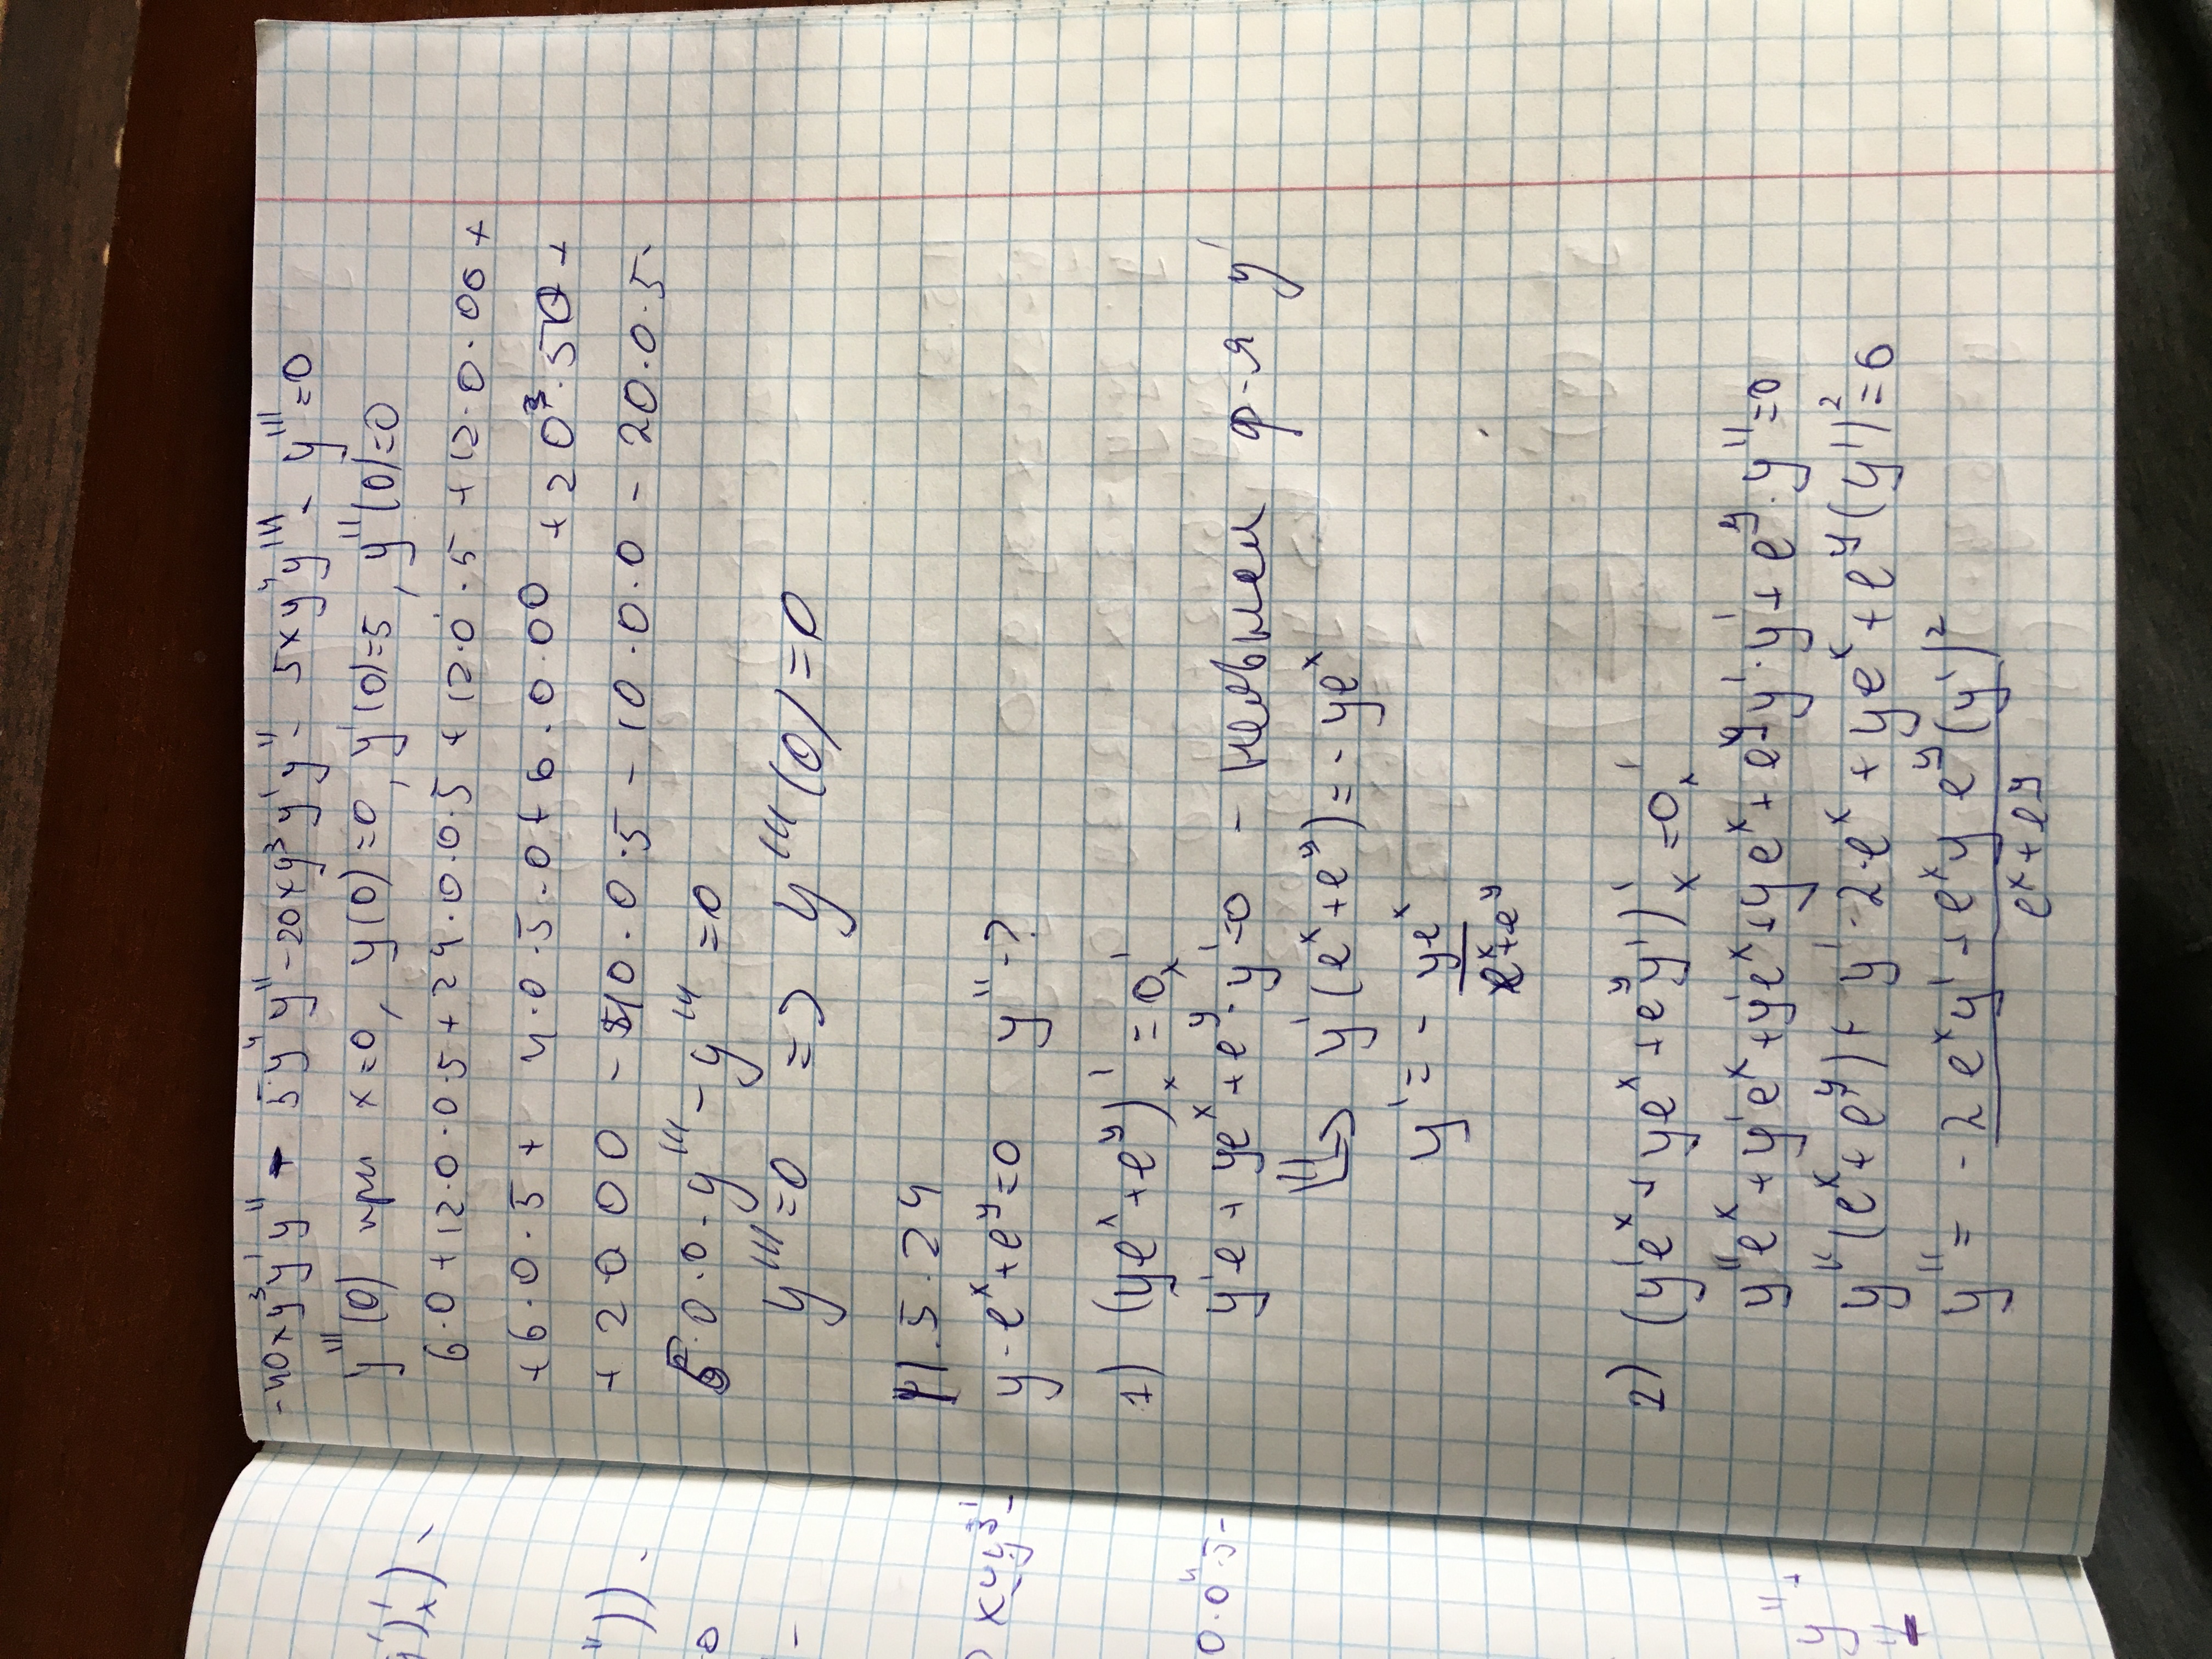 -40xy³y'y" - 5y⁴y" - 20xy³y'y" - 5xy⁴y''' - y''' = 0
y'''(0) при x=0, y(0)=0, y'(0)=5, y"(0)=0
6·0+12·0·0·5+24·0·0·5+12·0·5+12·0·00+
+6·0·5+ 4·0·5·0+6·0·00 +20³·50+
+2000 - 40·0·5 - 10·0·0 - 20·0·5-
5·0·0·y''' - y''' = 0
y'''=0 => y'''(0)=0
11.5.24
y·eˣ+eʸ=0 y"-?
1) (yeˣ+eʸ)'ₓ = 0'ₓ
y'e + yeˣ+eʸ·y'=0 - неявная ф-я y'
y'(eˣ+eʸ)=-yeˣ
y' = - yeˣ
eˣ+eʸ
2) (y'eˣ + yeˣ + eʸy')'ₓ = 0'ₓ
y"eˣ+y'eˣ+y'eˣ+yeˣ+eʸy'·y'+eʸ·y"=0
y"(eˣ+eʸ)+ y'·2·eˣ + yeˣ+eʸ(y')²=0
y" = -2eˣy'+eˣy eʸ(y')²
eˣ+eʸ
')'ₓ) -
")) -
0
-
xyy³-
0·0⁴·5-
y"+